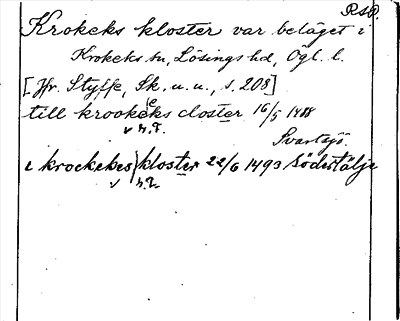 RSP.
Krokeks kloster var beläget i
Krokeks sn, Lösings hd, Ögl. l.
[Jfr. Styffe, Sk. u. u., s. 208]
till krookeks closter 16/5 1488
Svartsjö.
i krockekes kloster 22/6 1493 Södertälje